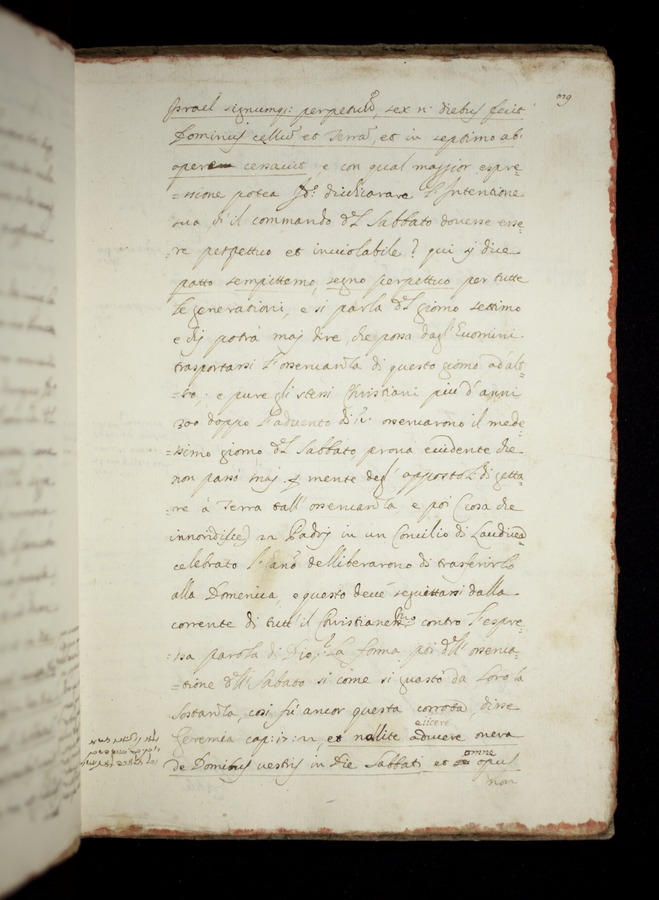 Israel signumq: perpetuũ, sex n. diebus fecit
Dominus cellũ et Terrã, et in septimo ab
opere cessavit e con qual maggior espre
=ssione potea dichiarare l'Intentione
sua ch'il commando del Sabbato dovesse esse
re perpettuo et inviolabile? qui si dice
patto sempitterno, segno perpettuo per tutte
le generationi, e si parla del giorno settimo
e chi potrà maj dire, che possa dagl'Euomini
trasportarsi l'osservanza di questo giorno ad'alt
=ro, e pure gli stessi Christiani più d'anni
300 doppo l'advento di osservarono il mede
=simo giorno del Sabbato prova evidente che
non passò maj p mente degl' appostoli di getta
=re à Terra tall'osservanza e poi (cosa che
innoridisce) 22 Padrj in un Concilio di Laudicea
celebrato l'anõ delliberarono di trasferirlo
alla Domenica, e questo deve seguittarsi dalla
corrente di tutt'il Christianesimo contro l'espre
=ssa parola di Dio, La forma poi dell'osserva
=tione dell Sabato si come si guastò da Loro la
sostanza, così fù ancor questa corrotta, disse
Geremia cap: 17: 22, et nollite aducere onera
eiicere
de Domibus vestris in Die Sabbati et opus
omne
non